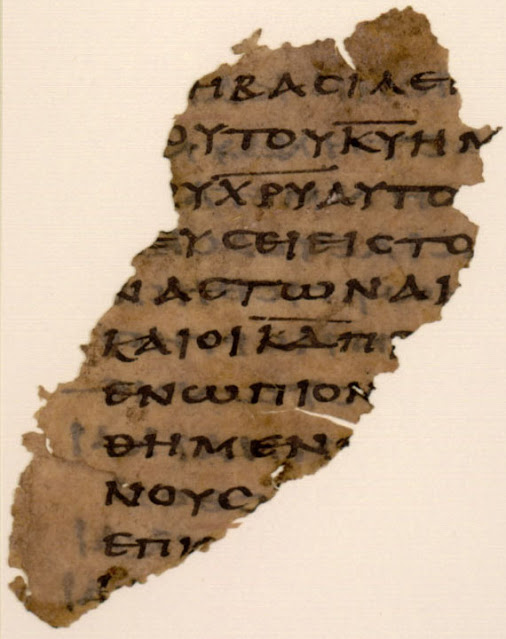 ΗΒΑϹΙΛΕΙ
ΟΥΤΟΥΚ̅Υ̅ΗΜ
ΥΧ̅Ρ̅Υ̅ΑΥΤΟ
ΕΥϹΕΙΕΙϹΤΟ
ΝΑϹΤΩΝΑΙ
ΚΑΙΟΙΚ̅Δ̅Π
ΕΝΩΠΙΟΝ
ΘΗΜΕΝ
ΝΟΥϹ
ΕΠΙ